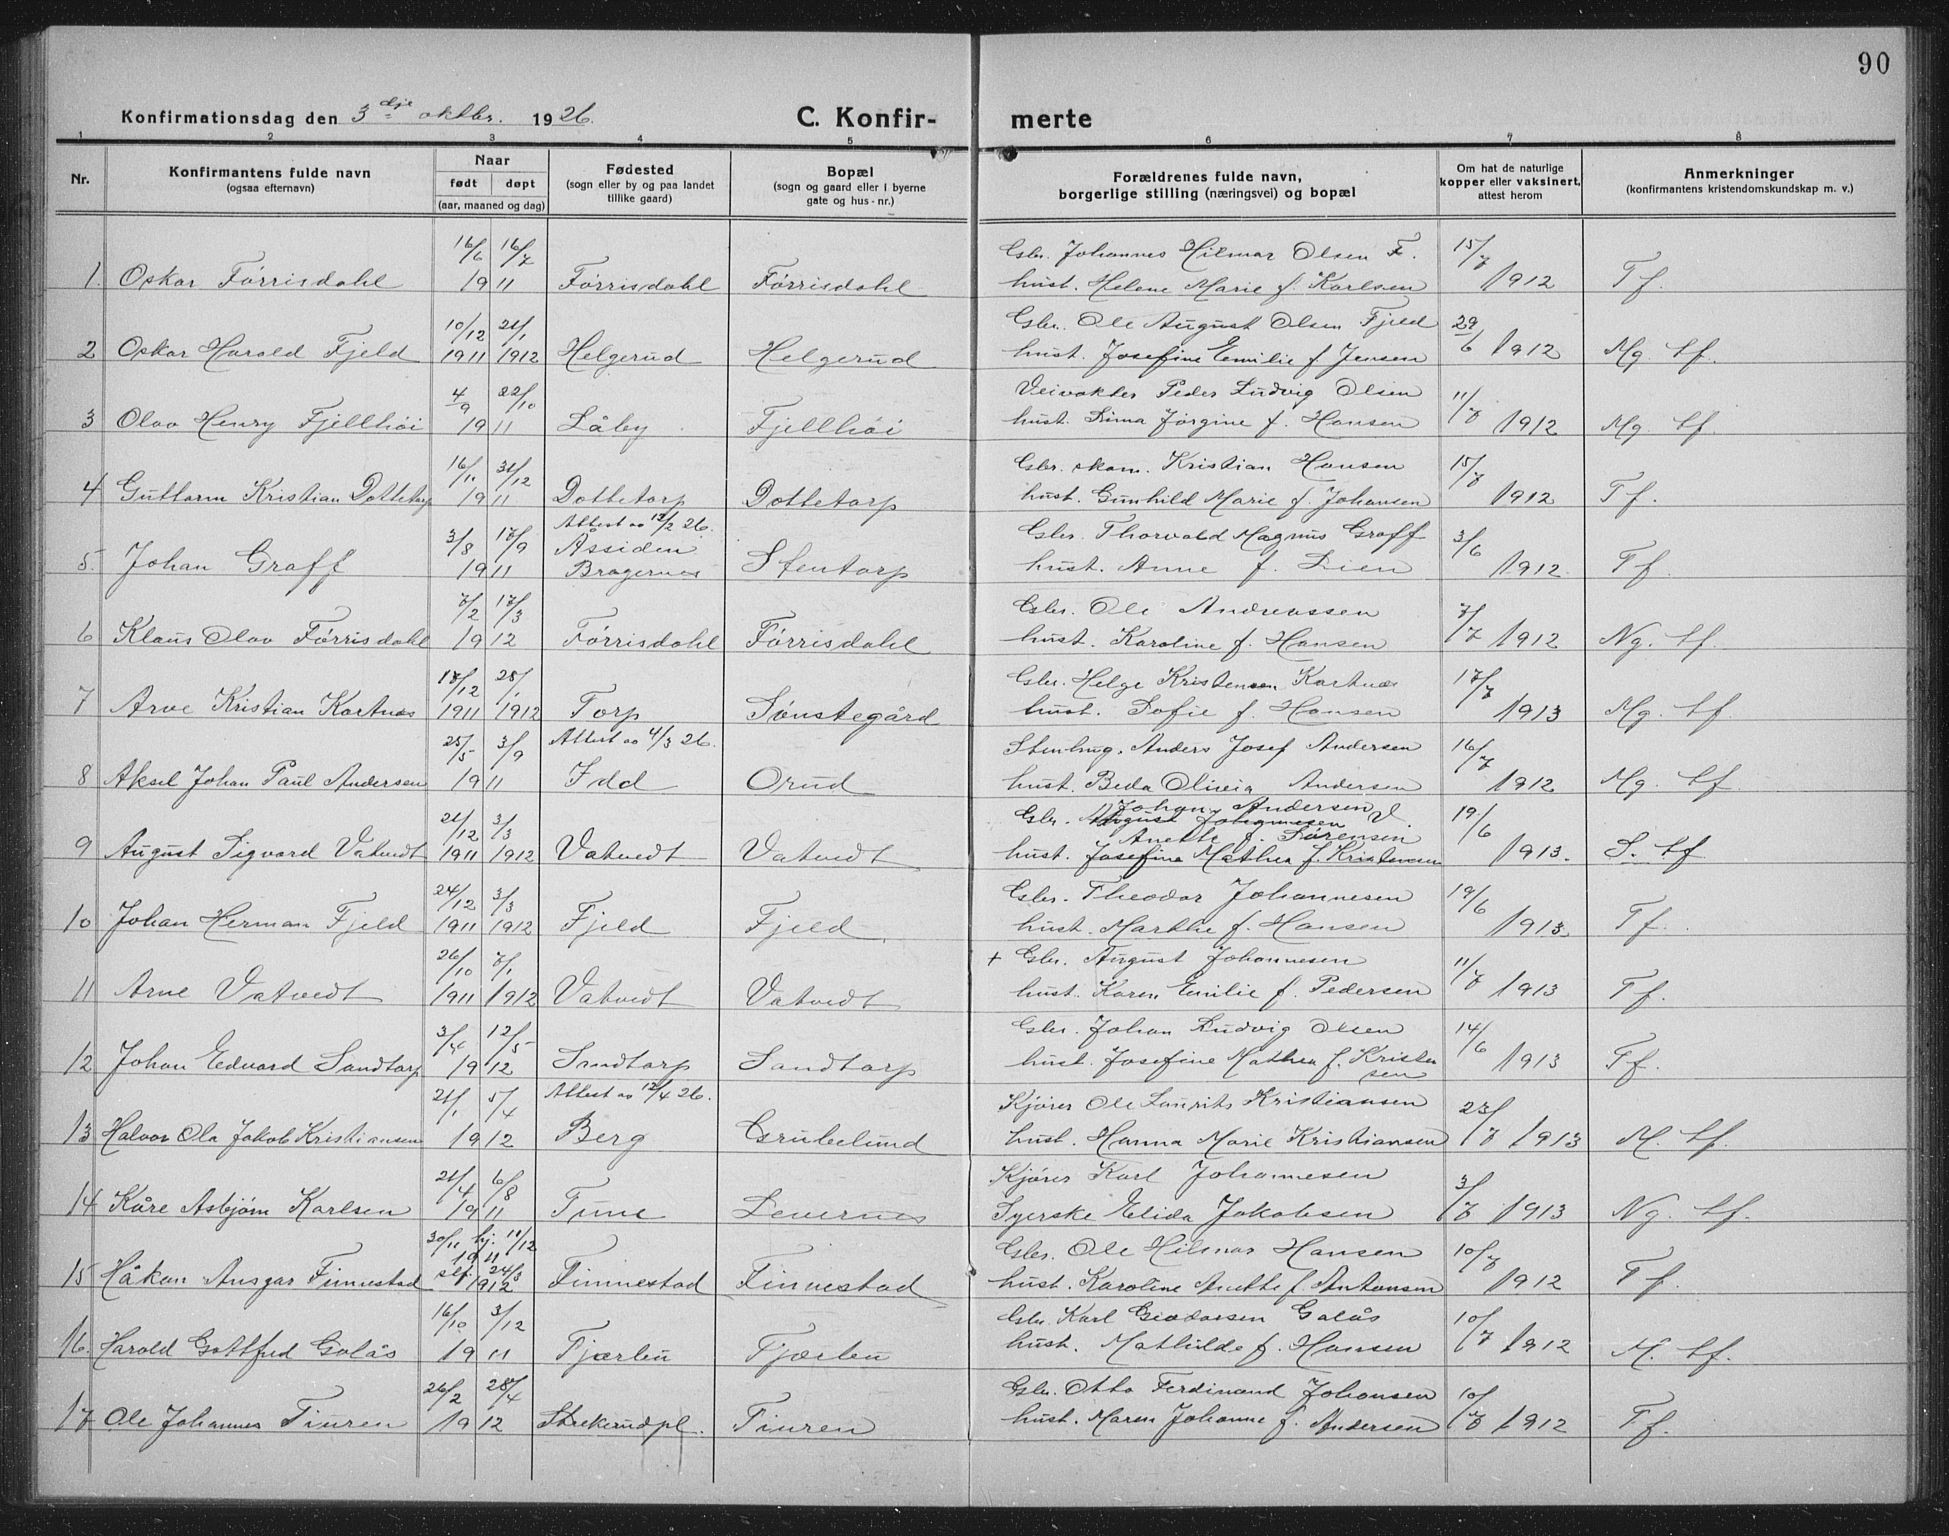 90
Konfirmationsdag den 3dje oktbr. 1926.
C. Konfir-merte
1 2 3 4 5 6 7 8
Nr. Konfirmantens fulde navn (ogsaa efternavn) Naar født døpt (aar, maaned og dag) Fødested (sogn eller by og paa landet tillike gaard) Bopæl (sogn og gaard eller i byerne gate og hus-nr.) Forældrenes fulde navn, borgerlige stilling (næringsvei) og bopæl Om hat de naturlige kopper eller vaksinert, attest herom Anmerkninger (konfirmantens kristendomskundskap m. v.)
16/6 16/7 Gbr. Johannes Hilmar Olsen F. 15/7
1. Oskar Førrisdahl 1911 Førrisdahl Førrisdahl hust. Helene Marie f. Karlsen 1912 Tf.
10/12 21/1 Gbr. Ole August Olsen Fjeld 29/6
2 Oskar Harald Fjeld 1911 1912 Helgerud Helgerud hust. Josefine Emilie f. Jensen 1912 Mg. tf.
4/9 22/10 Veivokter Peder Ludvig Olsen 11/7
3 Olav Henry Fjellhøi 1911 Låby Fjellhøi hust. Lina Jørgine f. Hansen 1912 Mg. tf.
16/11 31/12 Gbr. skom. Kristian Hansen 15/7
4 Guttorm Kristian Dottetorp 1911 Dottetorp Dottetorp hust. Gunhild Marie f. Johansen 1912 Tf.
Attest av 12/2 26.
3/8 17/9 Assiden Gbr. Thorvald Magnus Graff 3/6
5. Johan Graff 1911 Bragernes Stentorp hust. Anne f. Lien 1912. Tf.
7/2 17/3 Gbr. Ole Andreassen 7/7
6 Klaus Olav Førrisdahl 1912 Førrisdahl Førrisdahl hust. Karoline f. Hansen 1912 Ng. tf.
17/12 28/1 Gbr. Helge Kristensen Kortnæs 17/7
7 Arve Kristian Kortnæs 1911 1912 Torp Sønstegård hust. Sofie f. Hansen 1913 Mg. tf.
25/5 3/9 Attest av 4/3 26. Stenhug. Anders Josef Andersen 16/7
8 Aksel Johan Paul Andersen 1911 Idd Orud hust. Beda Olivia Andersen 1912 Mg. tf.
Johan Andersen V.
21/12 3/3 Gbr. August Johannesen 19/6
Anette f. Sørensen
9 August Sigvard Vatvedt 1911 1912 Vatvedt Vatvedt hust. Josefine Mathea f. Kristensen 1913. S. tf
24/12 3/3 Gbr. Theodor Johannesen 19/6
10 Johan Herman Fjeld 1911 1912 Fjeld Fjeld hust. Marthe f. Hansen 1913. Tf.
26/10 7/1 + Gbr. August Johannesen 11/7
11 Arne Vatvedt 1911 1912 Vatvedt Vatvedt hust. Karen Emilie f. Pedersen 1913 Tf.
3/4 12/5 Gbr. Johan Ludvig Olsen 14/6
12 Johan Edvard Sandtorp 1912 Sandtorp Sandtorp hust. Josefine Mathea f. Kristensen 1913 Tf.
21/1 5/4 Attest av 12/4 26. Kjører Ole Laurits Kristiansen 23/7
13 Halvor Ola Jakob Kristiansen 1912 Berg Grubelund hust. Hanna Marie Kristiansen 1913 M. tf.
21/4 6/8 Kjører Karl Johannesen 3/7
14 Kåre Asbjørn Karlsen 1911 Tune Levernes Syerske Elida Jakobsen 1913 Ng. tf.
30/11 hj. 11/12 1911 Gbr. Ole Hilmar Hansen 10/7
15 Håkon Ansgar Finnestad slf. 24/3 1912 Finnestad Finnestad hust. Karoline Anette f. Antonsen 1912 Tf.
16/10 3/12 Gbr. Karl Geodorsen Golås 10/7
16. Harald Gottfred Golås 1911 Fjærbu Fjærbu hust. Mathilde f. Hansen 1912 M. tf.
26/2 28/4 Gbr. Otto Ferdinand Johansen 10/7
17 Ole Johannes Tiuren 1912 Strekerudpl. Tiuren hust. Maren Johanne f. Andersen 1912 Tf.